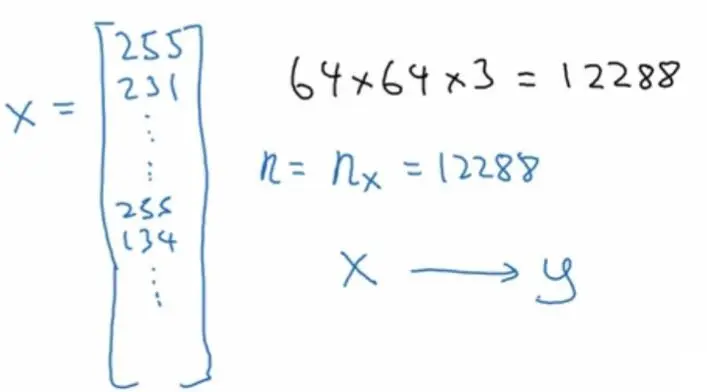 x = [255
231
⋮
⋮
255
134
⋮
⋮]
64×64×3 = 12288
n = nₓ = 12288
x ⟶ y